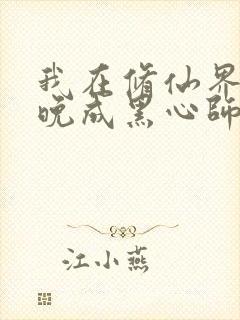 我在修仙界
晚成黑心師
江小燕